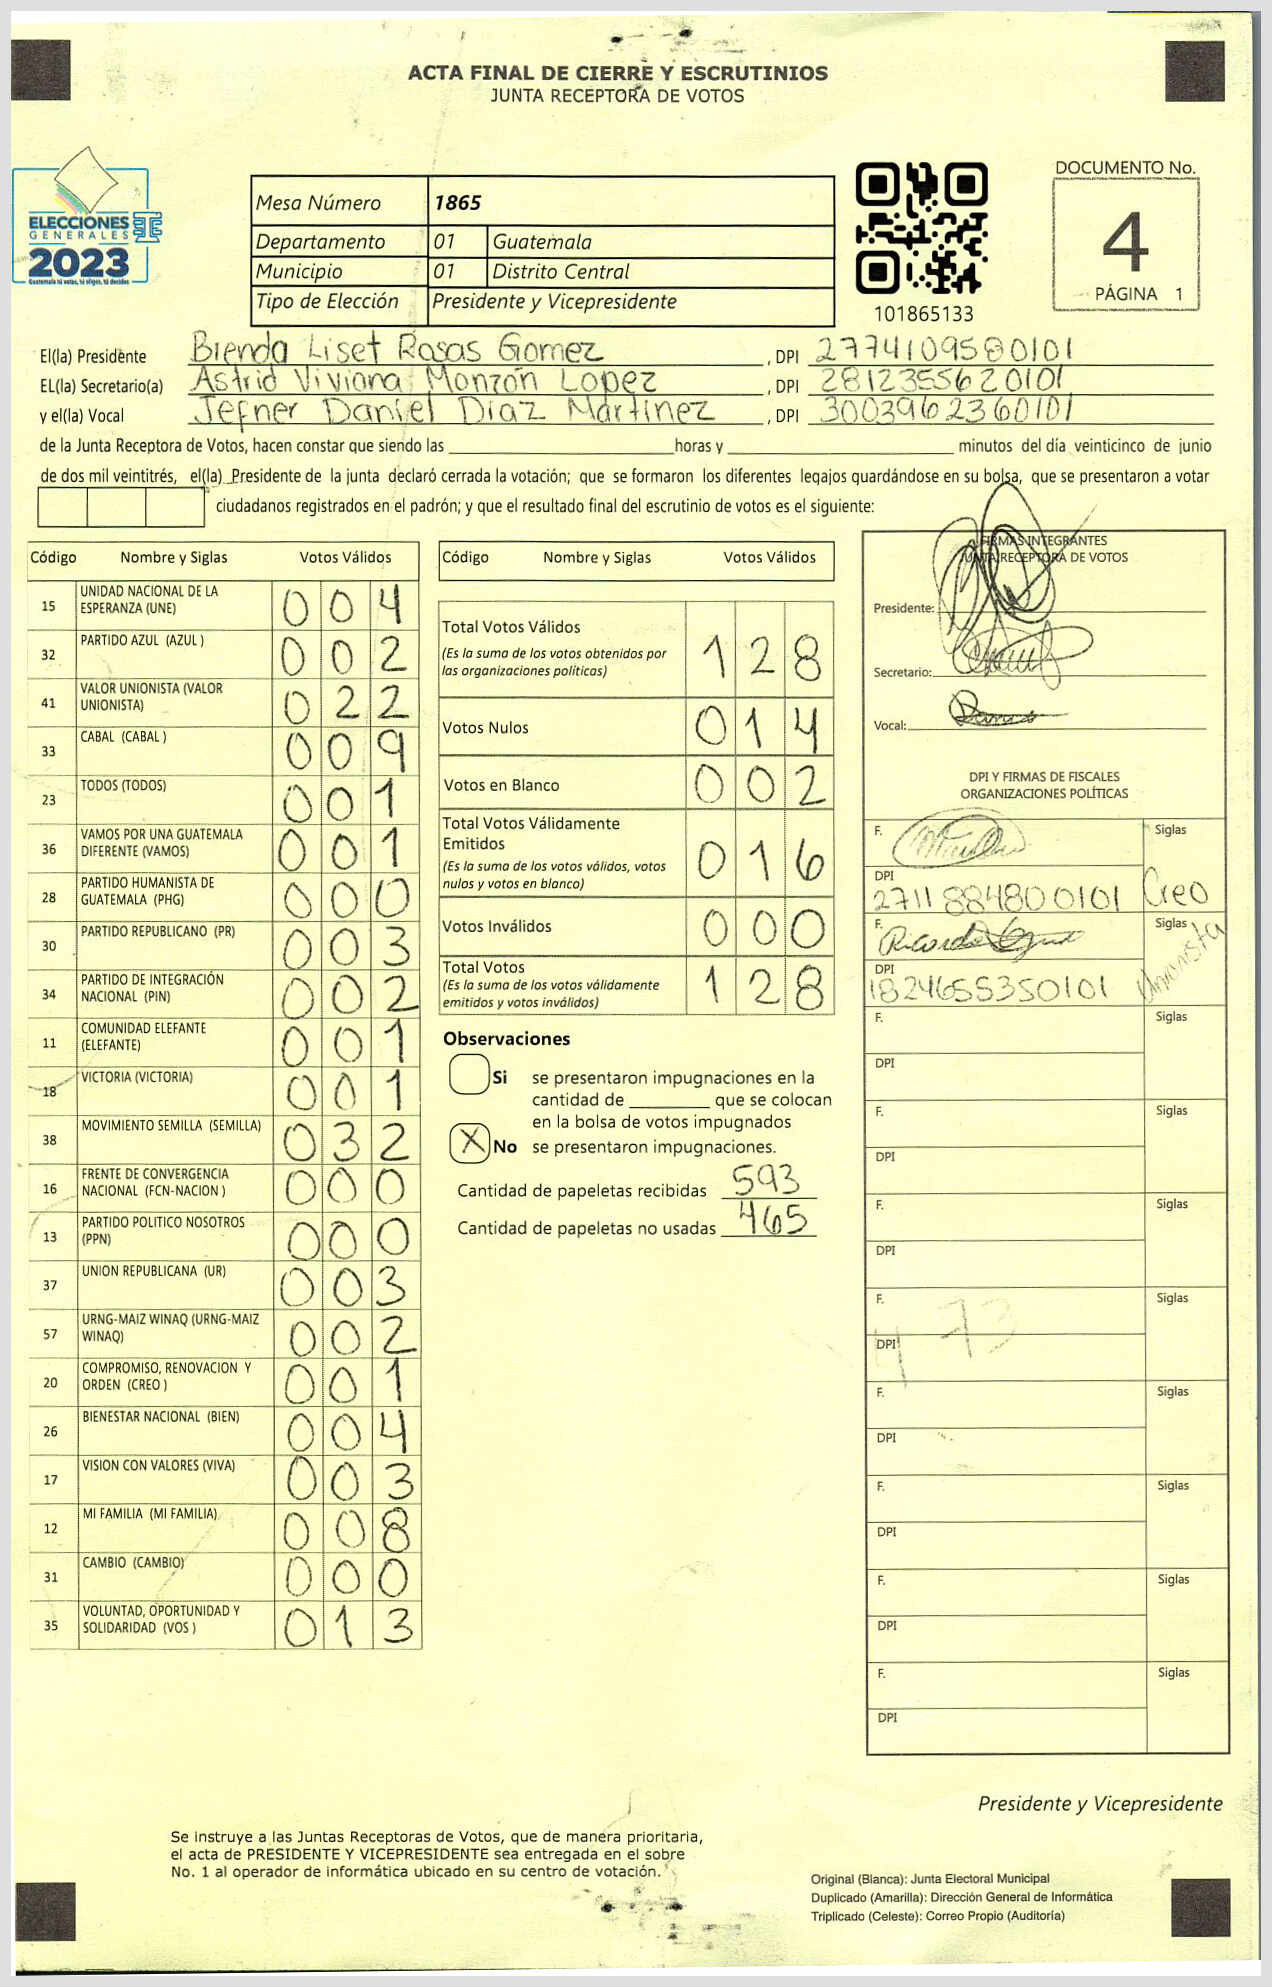 ACTA FINAL DE CIERRE Y ESCRUTINIOS
JUNTA RECEPTORA DE VOTOS
ELECCIONES
GENERALES
2023
Guatemala tú votas, tú eliges, tú decides
Mesa Número 1865
Departamento 01 Guatemala
Municipio 01 Distrito Central
Tipo de Elección Presidente y Vicepresidente
101865133
DOCUMENTO No.
4
PÁGINA 1
El(la) Presidente Brenda Liset Rosas Gomez, DPI 2774109580101
EL(la) Secretario(a) Astrid Viviana Monzón Lopez, DPI 2812355620101
y el(la) Vocal Jefner Daniel Diaz Martinez, DPI 3003962360101
de la Junta Receptora de Votos, hacen constar que siendo las ____ horas y ____ minutos del día veinticinco de junio
de dos mil veintitrés, el(la) Presidente de la junta declaró cerrada la votación; que se formaron los diferentes legajos quardándose en su bolsa, que se presentaron a votar
ciudadanos registrados en el padrón; y que el resultado final del escrutinio de votos es el siguiente:
Código Nombre y Siglas Votos Válidos
15 UNIDAD NACIONAL DE LA ESPERANZA (UNE) 0 0 4
32 PARTIDO AZUL (AZUL ) 0 0 2
41 VALOR UNIONISTA (VALOR UNIONISTA) 0 2 2
33 CABAL (CABAL ) 0 0 9
23 TODOS (TODOS) 0 0 1
36 VAMOS POR UNA GUATEMALA DIFERENTE (VAMOS) 0 0 1
28 PARTIDO HUMANISTA DE GUATEMALA (PHG) 0 0 0
30 PARTIDO REPUBLICANO (PR) 0 0 3
34 PARTIDO DE INTEGRACIÓN NACIONAL (PIN) 0 0 2
11 COMUNIDAD ELEFANTE (ELEFANTE) 0 0 1
18 VICTORIA (VICTORIA) 0 0 1
38 MOVIMIENTO SEMILLA (SEMILLA) 0 3 2
16 FRENTE DE CONVERGENCIA NACIONAL (FCN-NACION ) 0 0 0
13 PARTIDO POLITICO NOSOTROS (PPN) 0 0 0
37 UNION REPUBLICANA (UR) 0 0 3
57 URNG-MAIZ WINAQ (URNG-MAIZ WINAQ) 0 0 2
20 COMPROMISO, RENOVACION Y ORDEN (CREO ) 0 0 1
26 BIENESTAR NACIONAL (BIEN) 0 0 4
17 VISION CON VALORES (VIVA) 0 0 3
12 MI FAMILIA (MI FAMILIA) 0 0 8
31 CAMBIO (CAMBIO) 0 0 0
35 VOLUNTAD, OPORTUNIDAD Y SOLIDARIDAD (VOS ) 0 1 3
Código Nombre y Siglas Votos Válidos
Total Votos Válidos 1 2 8
(Es la suma de los votos obtenidos por
las organizaciones políticas)
Votos Nulos 0 1 4
Votos en Blanco 0 0 2
Total Votos Válidamente
Emitidos 0 1 6
(Es la suma de los votos válidos, votos
nulos y votos en blanco)
Votos Inválidos 0 0 0
Total Votos 1 2 8
(Es la suma de los votos válidamente
emitidos y votos inválidos)
Observaciones
Si se presentaron impugnaciones en la
cantidad de ____ que se colocan
en la bolsa de votos impugnados
X No se presentaron impugnaciones.
Cantidad de papeletas recibidas 593
Cantidad de papeletas no usadas 465
FIRMAS INTEGRANTES
JUNTA RECEPTORA DE VOTOS
Presidente:
Secretario:
Vocal:
DPI Y FIRMAS DE FISCALES
ORGANIZACIONES POLÍTICAS
F. Siglas
DPI
2711884800101 Creo
F. Ricardo Siglas Unionista
DPI
1824655350101
F. Siglas
DPI
F. Siglas
DPI
F. Siglas
DPI
F. Siglas
DPI
473
F. Siglas
DPI
F. Siglas
DPI
F. Siglas
DPI
F. Siglas
DPI
Presidente y Vicepresidente
Se instruye a las Juntas Receptoras de Votos, que de manera prioritaria,
el acta de PRESIDENTE Y VICEPRESIDENTE sea entregada en el sobre
No. 1 al operador de informática ubicado en su centro de votación.
Original (Blanca): Junta Electoral Municipal
Duplicado (Amarilla): Dirección General de Informática
Triplicado (Celeste): Correo Propio (Auditoría)